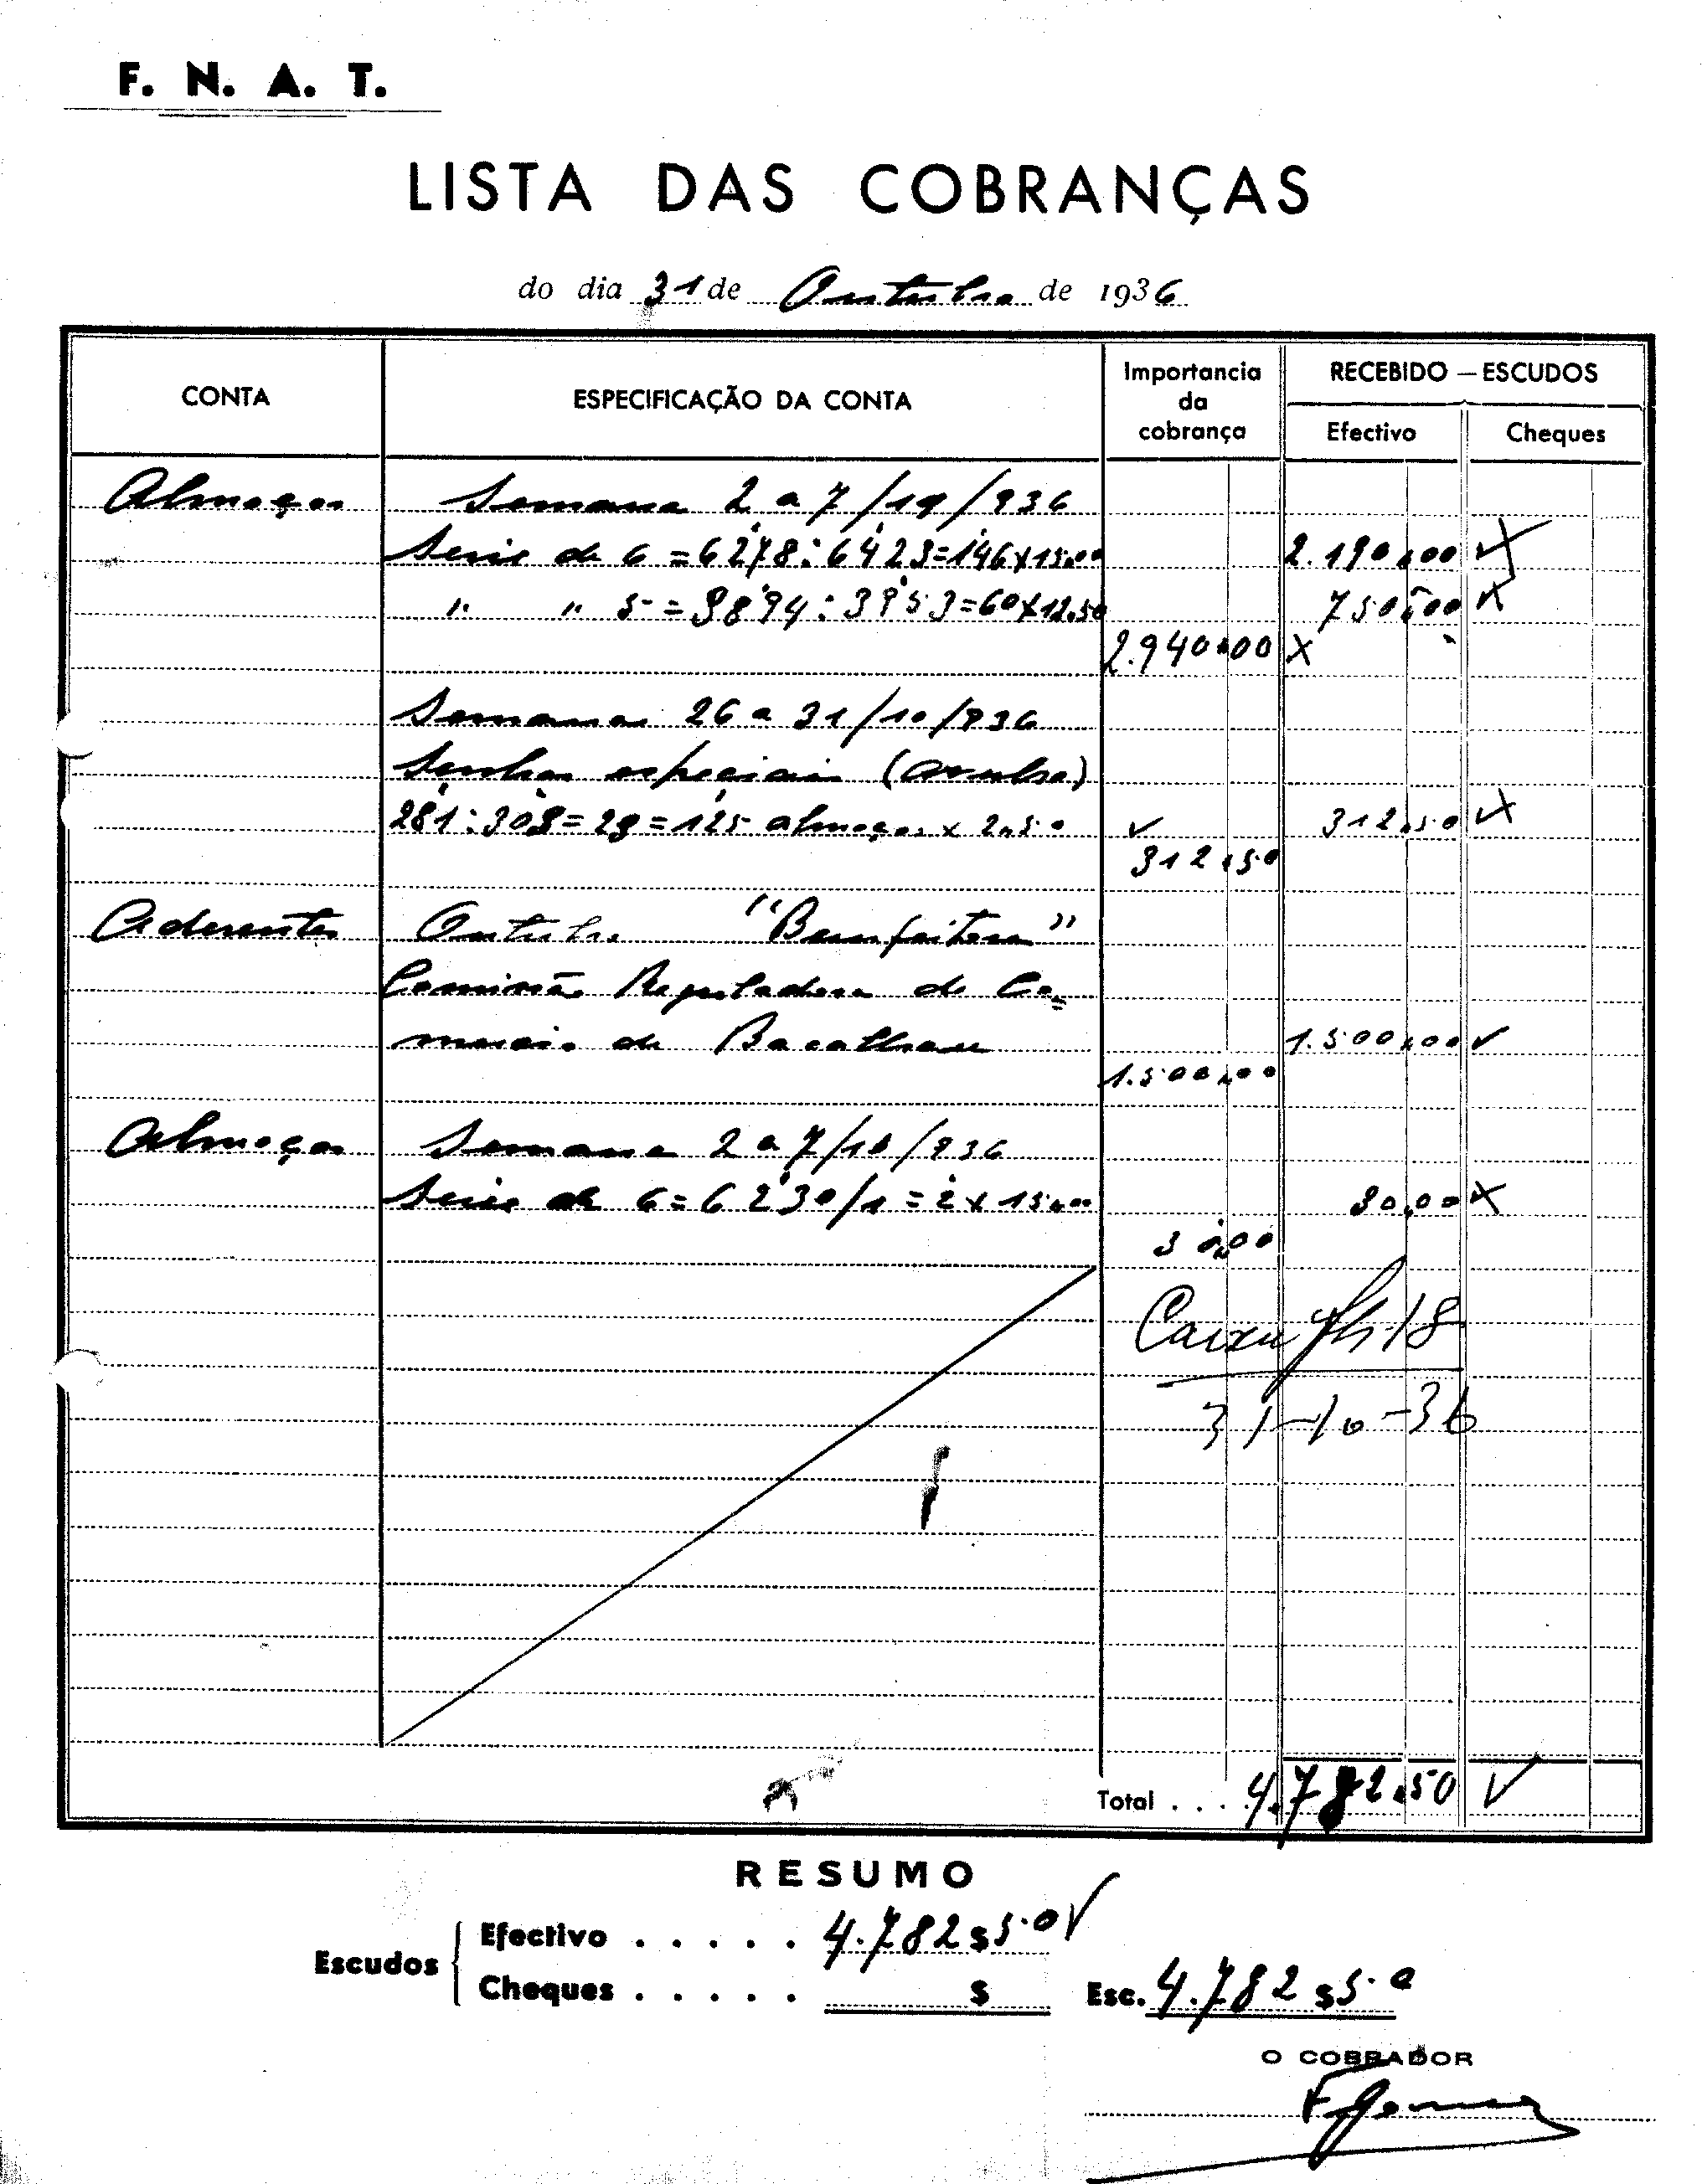 F. N. A. T.
LISTA DAS COBRANÇAS
do dia 31 de Outubro de 1936
CONTA
ESPECIFICAÇÃO DA CONTA
Importancia da cobrança
RECEBIDO — ESCUDOS
Efectivo
Cheques
Almoços Semana 2 a 7/10/936
Serie de 6 = 6278:6423=146x15.00 2.190.00
" " 5 = 3894:3953=60x12.50 750.00
2.940.00
Semana 26 a 31/10/936
Senhas especiais (avulso)
281:309=29=125 almoços x 2.50 312.50
312.50
Aderentes Outubro "Bemfeitora"
Comissão Reguladora do Co=
mercio de Bacalhau 1.500.00
1.500.00
Almoços Semana 2 a 7/10/936
Serie de 6=6230/1=2x15.00 30.00
30.00
Caixa fls 18
31-10-36
Total . . . 4.782.50
RESUMO
Escudos
Efectivo . . . . . 4.782$50
Cheques . . . . . $
Esc. 4.782$50
O COBRADOR